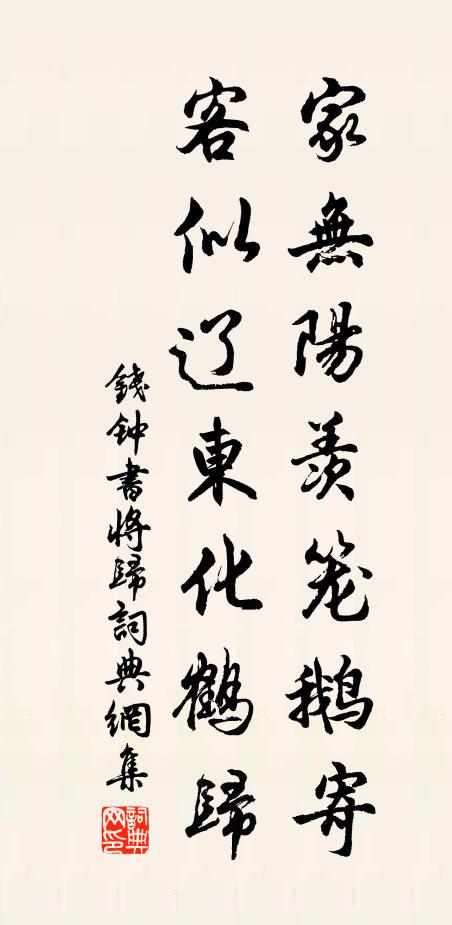 家無陽羨笼鹅寄
客似辽東化鶴歸
錢钟書將歸詞典網集
詞典网印